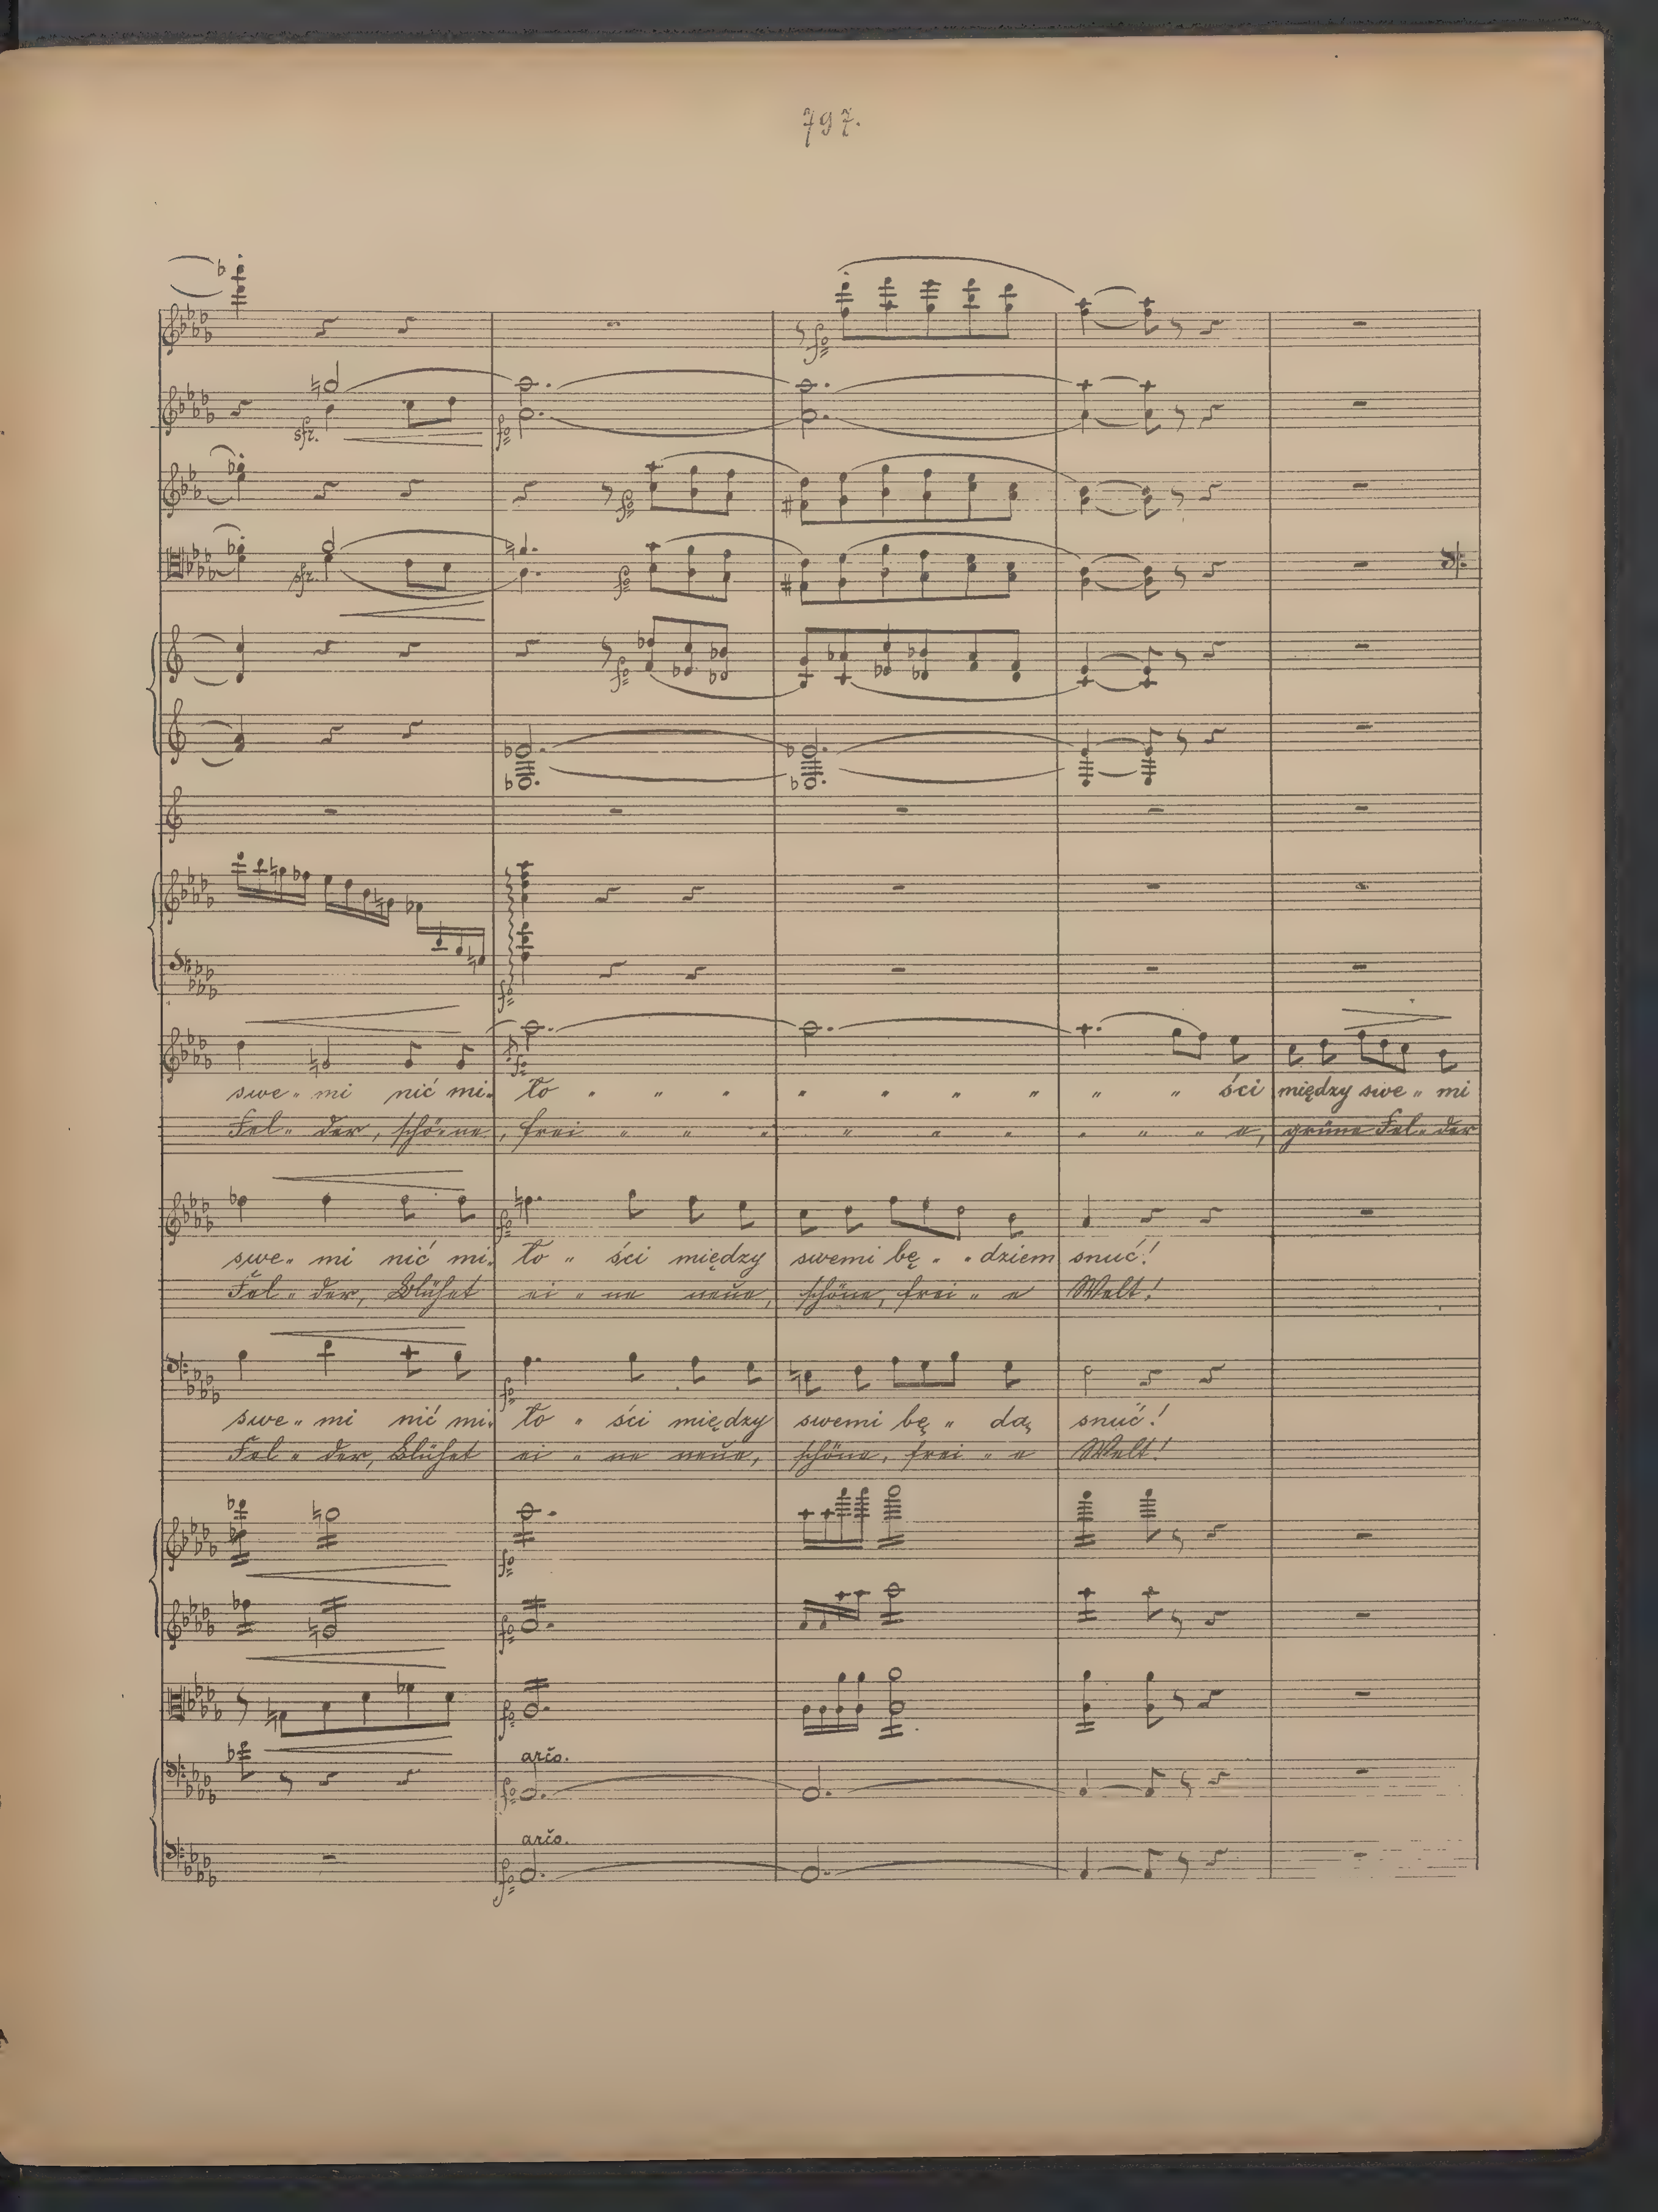 797.
sfz. fo
fo
sfz. fo
fo
fo
fo
swe „ mi nić mi „ ło „ „ „ „ „ „ „ „ „ „ ści między swe „ mi
Fel „ der, schö „ ne, frei „ „ „ „ „ „ „ „ „ e, grüne Fel „ der
fo
swe „ mi nić mi „ ło „ ści między swemi bę „ „ dziem snuć!
Fel „ der, Blühet ei „ ne neue, schöne, frei „ e Welt!
fo
swe „ mi nić mi „ ło „ ści między swemi bę „ dą snuć!
Fel „ der, Blühet ei „ ne neue, schöne, frei „ e Welt!
fo
fo
fo
arco.
fo
arco.
fo